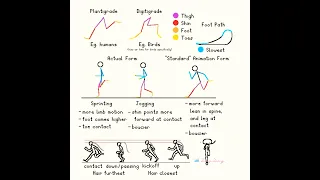 Plantigrade
Digitigrade
Thigh
Shin
Foot
Toes
Foot Path
Slowest
Eg. humans
Eg. Birds
Actual Form
"Standard" Animation Form
Sprinting
- more limb motion
- foot comes higher
- toe contact
Jogging
- shin points more
forward at contact
- bouncier
- more forward
lean in spine,
and leg at
contact
- bouncier
contact down/passing kickoff up
Hair furthest
Hair closest